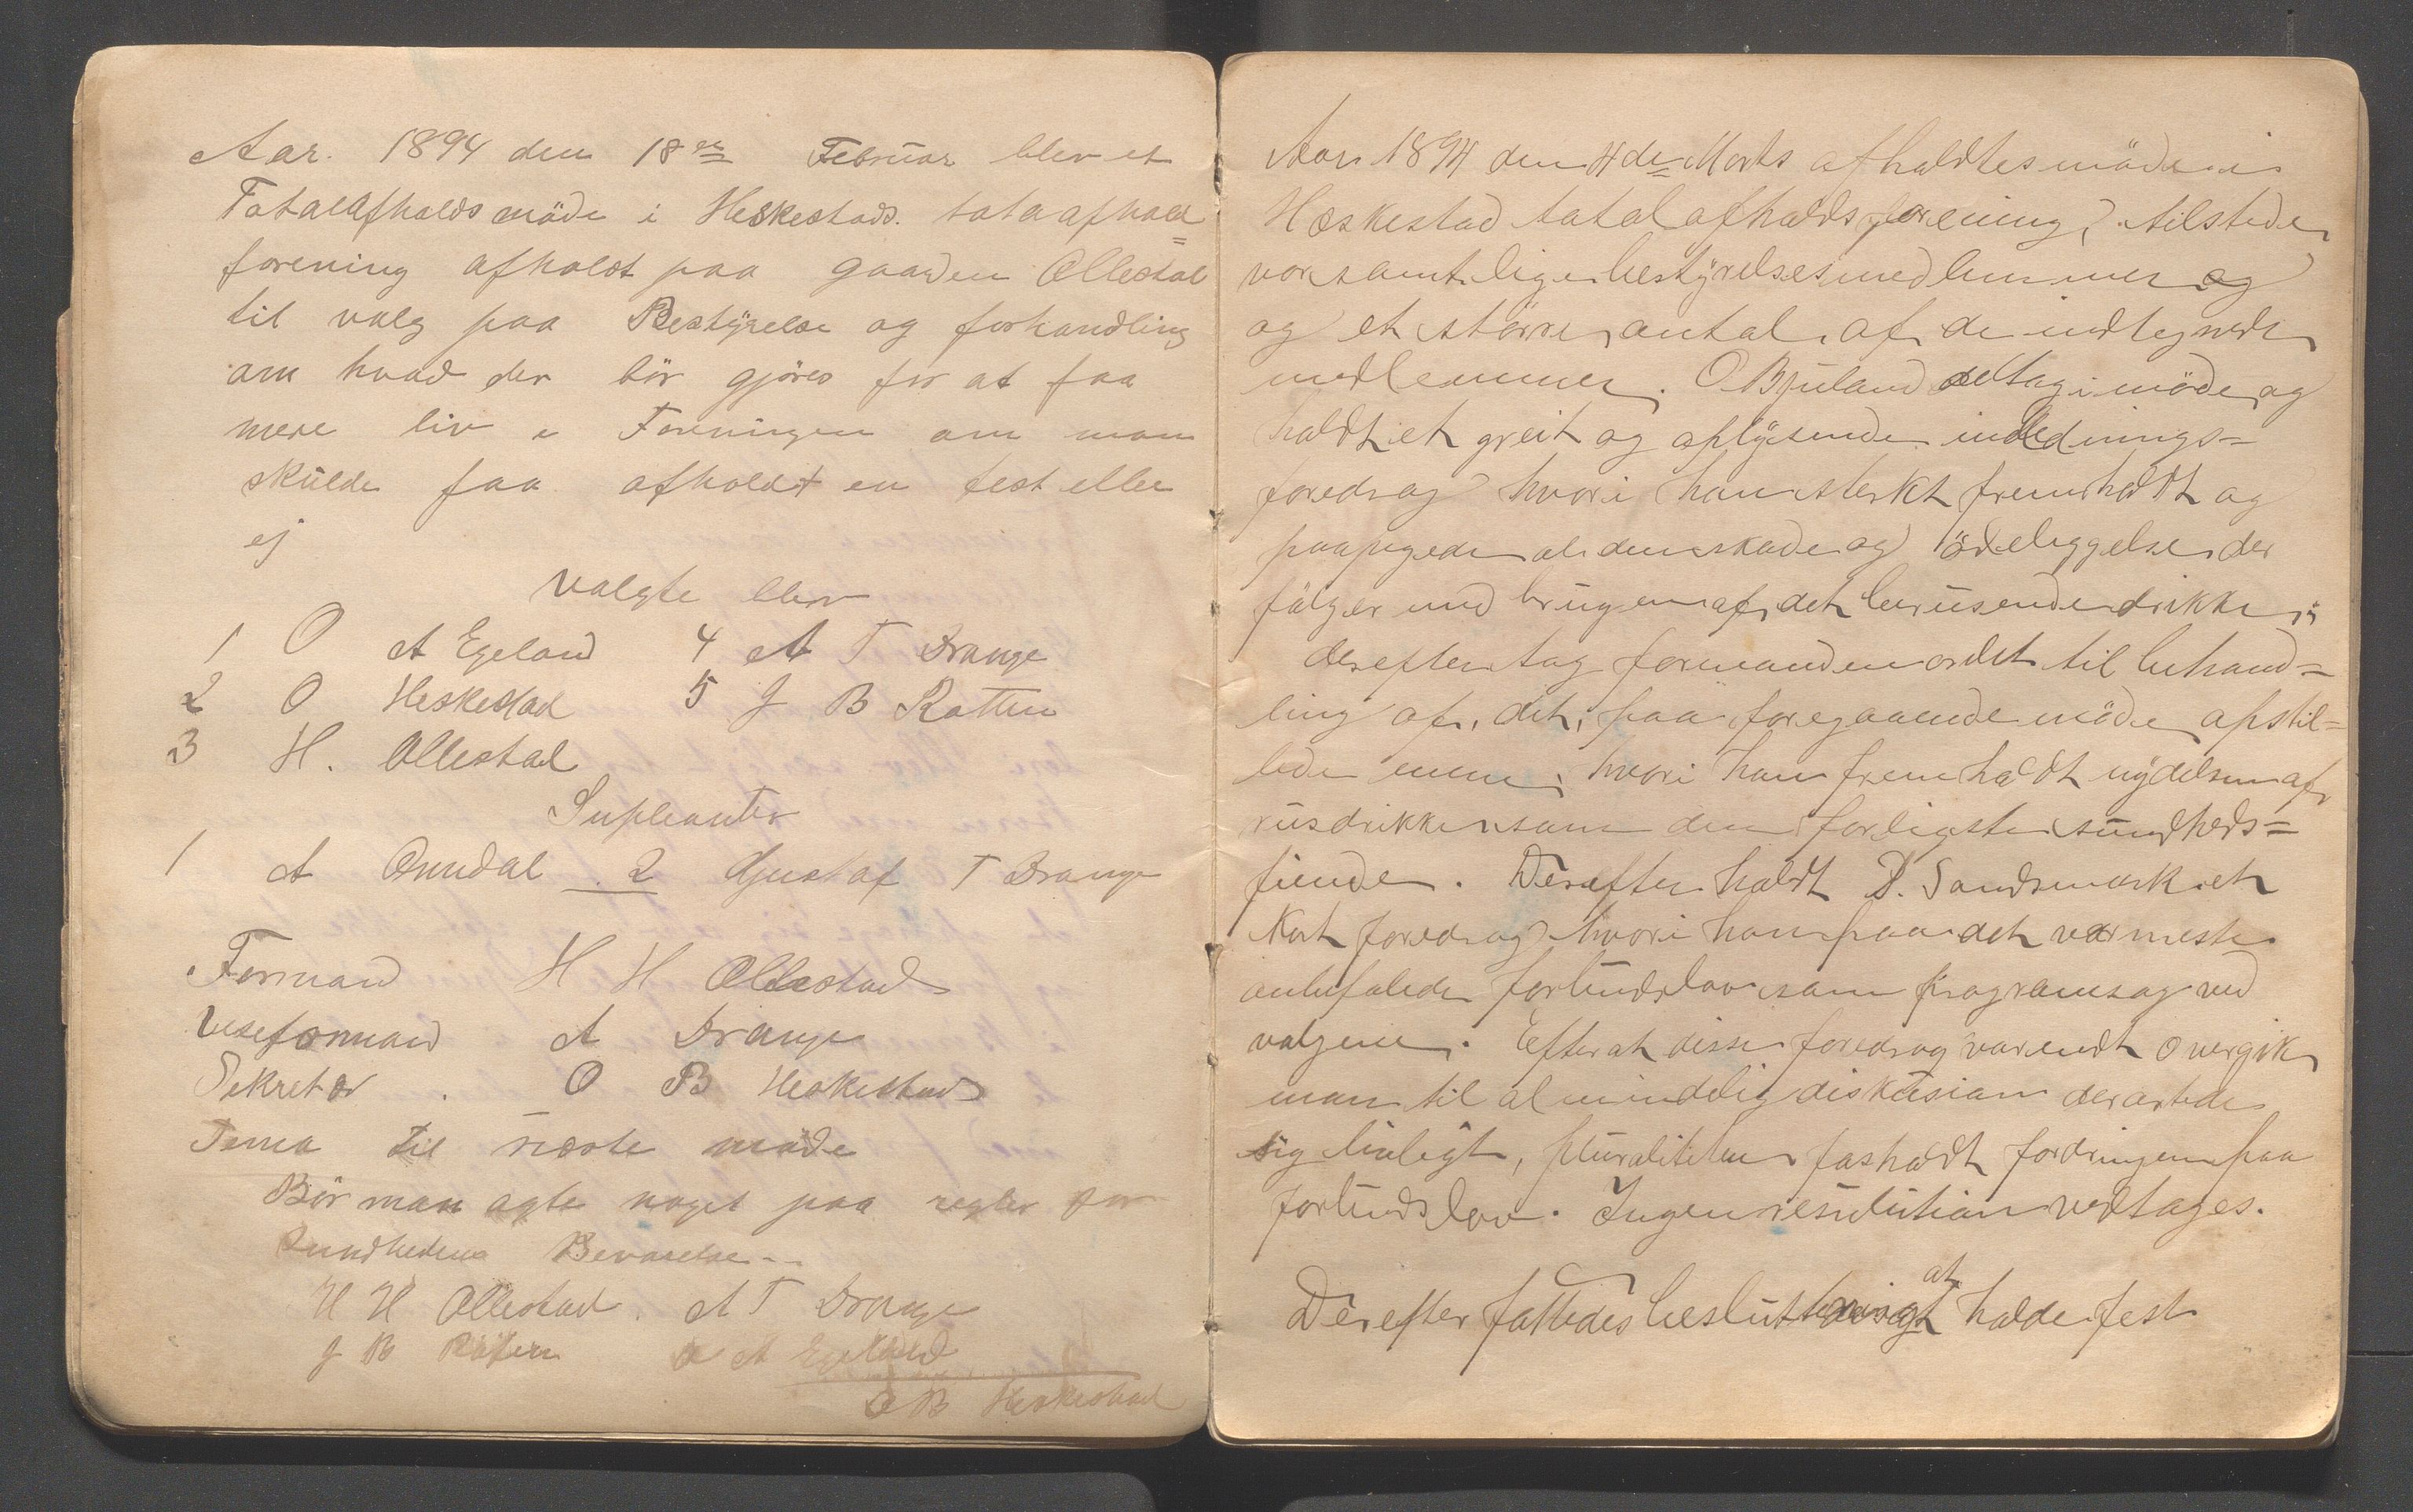 Aar. 1894 den 18de Februar blev et
Totalafholdsmöde i Heskestads. totaafhold=
forening afholdt paa gaarden Ollestad
til valg paa Bestÿrelse og forhandling
om hvad der bör gjöres for at faa
mere liv i Foreningen om man
skulde faa afholdt en fest eller
ej
valgte blev
1 O A Egeland 4 A T Drange
2 O Heskestad 5 J B Rötten
3 H. Ollestad
Supleanter
1 A Omdal 2 Gustaf T Drange
Formand H H Ollestad
Viseformand A Drange
Sekretær. O B Heskestad
Tema til næste möde
Bör man agte noget paa regler for
Sundhedens Bevarelse
H H Ollestad. A T Drange
J B Rötten O A Egeland
O B Heskestad
Aar 1894 den 4de Marts afholdtes möde i
Heskestad total afholdsforening, tilstede
var samtlige bestÿrelsesmedlemmer og
og et större antal af de indtegnede
medlemmer. O Bjuland deltog i möde, og
holdt et greit og oplÿsende inlednings=
foredrag hvori han sterkt fremholdt og
paapegede al den skade og ödeleggelse der
fölger med brugen af det berusende drikke;
derefter tog formanden ordet til behand=
ling af, det, paa foregaaende möde opstil=
lede emne, hvori han fremholdt nÿdelsen af
rusdrikker som den farligste sundheds=
fiende. Derefter holdt D. Sandsmark et
kort foredrag hvori han paa det varmeste
anbefalede forbudslov som programsag ved
valgene. Efter at disse foredrag var endt overgik
man til almindelig diskusian der artede
sig livligt, pluraliteten fasholdt fordringen paa
forbudslov. Ingen resulutian vedtages.
Derefter fattedes beslutning at holde fest